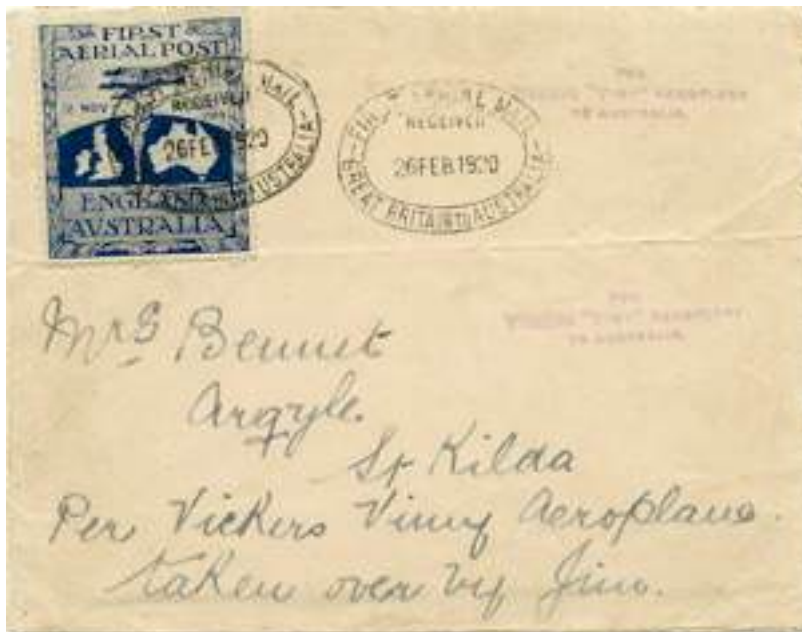 FIRST
AERIAL POST
12 NOV
RECEIVED
26 FE 1920
ENGLAND
AUSTRALIA
FIRST AERIAL MAIL
RECEIVED
26 FEB 1920
GREAT BRITAIN TO AUSTRALIA
PER
VICKERS "VIMY" AEROPLANE
TO AUSTRALIA.
PER
VICKERS "VIMY" AEROPLANE
TO AUSTRALIA.
Mrs Bennet
Argyle.
St Kilda
Per Vickers Vimy Aeroplane.
taken over by Jim.